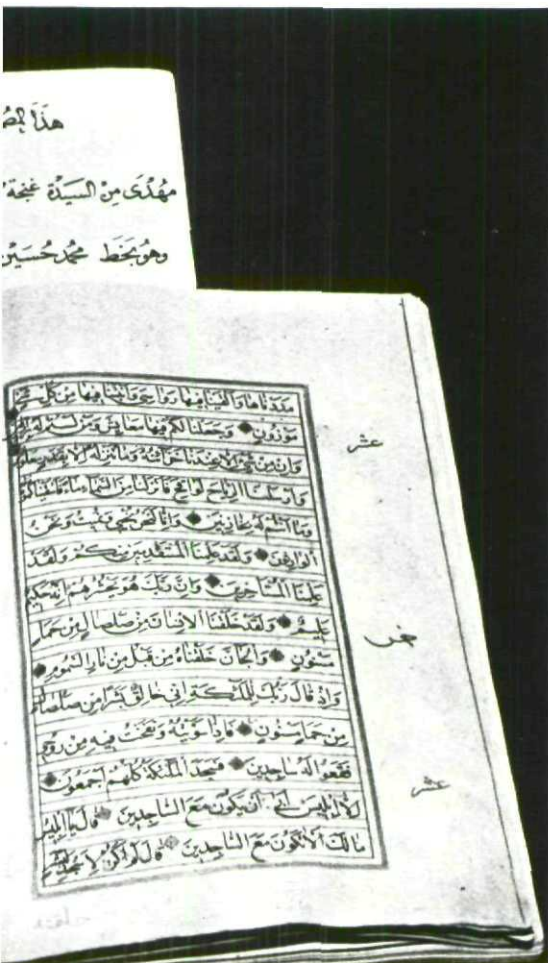 هذا المص
مهدى من السيدة غنجة
وهو بخط محمد حسين
مددناها والقينا فيها رواسي وانبتنا فيها من كل شئ
موزون وجعلنا لكم فيها معايش ومن لستم له برازقين
وان من شئ الا عندنا خزائنه وما ننزله الا بقدر معلوم
وارسلنا الرياح لواقح فانزلنا من السماء ماء فاسقيناكموه
وما انتم له بخازنين وانا لنحن نحيي ونميت ونحن
الوارثون ولقد علمنا المستقدمين منكم ولقد
علمنا المستأخرين وان ربك هو يحشرهم انه حكيم
عليم ولقد خلقنا الانسان من صلصال من حماء
مسنون والجان خلقناه من قبل من نار السموم
واذ قال ربك للملئكة اني خالق بشرا من صلصال
من حماء مسنون فاذا سويته ونفخت فيه من روحي
فقعوا له ساجدين فسجد الملئكة كلهم اجمعون
الا ابليس ابى ان يكون مع الساجدين قال يا ابليس
مالك الا تكون مع الساجدين قال لم اكن لاسجد
عشر
عشر